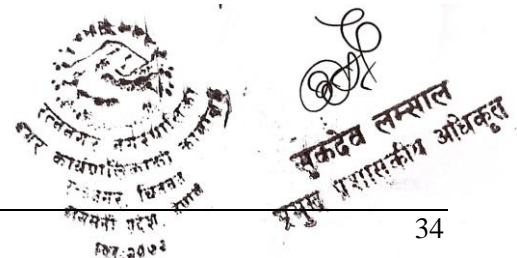 रत्ननगर नगरपालिका
नगर कार्यपालिकाको कार्यालय
रत्ननगर, चितवन
बागमती प्रदेश, नेपाल
सुकदेव लम्साल
प्रमुख प्रशासकीय अधिकृत
34